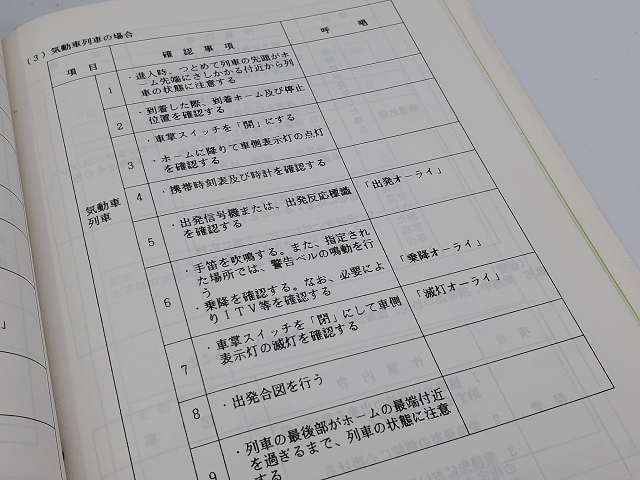 (3) 気動車列車の場合
項目
確認事項
呼唱
気動車
列車
1
・進入時、つとめて列車の先頭がホ
ーム先端にさしかかる付近から列
車の状態に注意する
2
・到着した際、到着ホーム及び停止
位置を確認する
3
・車掌スイッチを「開」にする
・ホームに降りて車側表示灯の点灯
を確認する
4
・携帯時刻表及び時計を確認する
5
・出発信号機または、出発反応標識
を確認する
「出発オーライ」
6
・手笛を吹鳴する。また、指定され
た場所では、警告ベルの鳴動を行
う
・乗降を確認する。なお、必要によ
りITV等を確認する
「乗降オーライ」
7
・車掌スイッチを「閉」にして車側
表示灯の滅灯を確認する
「滅灯オーライ」
8
・出発合図を行う
9
・列車の最後部がホームの最端付近
を過ぎるまで、列車の状態に注意
する